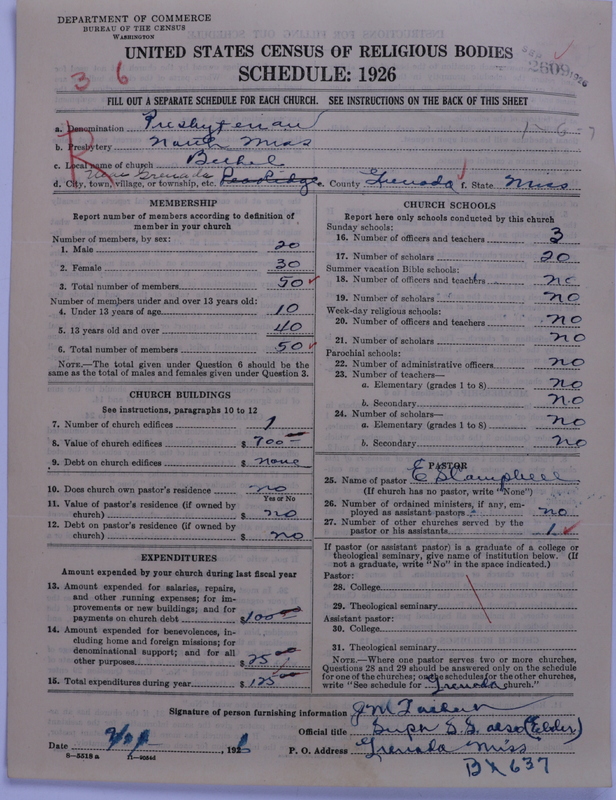 DEPARTMENT OF COMMERCE
BUREAU OF THE CENSUS
WASHINGTON
UNITED STATES CENSUS OF RELIGIOUS BODIES
SCHEDULE: 1926
2609
3 6
FILL OUT A SEPARATE SCHEDULE FOR EACH CHURCH. SEE INSTRUCTIONS ON THE BACK OF THIS SHEET
a. Denomination Presbyterian 1-6-7
b. Presbytery North Miss
R
c. Local name of church Bethel
near Grenada
d. City, town, village, or township, etc. e. County Grenada f. State Miss
MEMBERSHIP
Report number of members according to definition of member in your church
Number of members, by sex:
1. Male 20
2. Female 30
3. Total number of members 50
Number of members under and over 13 years old:
4. Under 13 years of age 10
5. 13 years old and over 40
6. Total number of members 50
NOTE.—The total given under Question 6 should be the same as the total of males and females given under Question 3.
CHURCH BUILDINGS
See instructions, paragraphs 10 to 12
7. Number of church edifices 1
8. Value of church edifices $ 700
9. Debt on church edifices $ none
10. Does church own pastor's residence no
Yes or No
11. Value of pastor's residence (if owned by church) $ no
12. Debt on pastor's residence (if owned by church) $ no
EXPENDITURES
Amount expended by your church during last fiscal year
13. Amount expended for salaries, repairs, and other running expenses; for improvements or new buildings; and for payments on church debt $ 100
14. Amount expended for benevolences, including home and foreign missions; for denominational support; and for all other purposes $ 25
15. Total expenditures during year $ 125
CHURCH SCHOOLS
Report here only schools conducted by this church
Sunday schools:
16. Number of officers and teachers 3
17. Number of scholars 20
Summer vacation Bible schools:
18. Number of officers and teachers no
19. Number of scholars no
Week-day religious schools:
20. Number of officers and teachers no
21. Number of scholars no
Parochial schools:
22. Number of administrative officers no
23. Number of teachers—
a. Elementary (grades 1 to 8) no
b. Secondary no
24. Number of scholars—
a. Elementary (grades 1 to 8) no
b. Secondary no
PASTOR
25. Name of pastor E S Campbell
(If church has no pastor, write "None")
26. Number of ordained ministers, if any, employed as assistant pastors no
27. Number of other churches served by the pastor or his assistants 1
If pastor (or assistant pastor) is a graduate of a college or theological seminary, give name of institution below. (If not a graduate, write "No" in the space indicated.)
Pastor:
28. College
29. Theological seminary
Assistant pastor:
30. College
31. Theological seminary
NOTE.—Where one pastor serves two or more churches, Questions 28 and 29 should be answered only on the schedule for one of the churches; on the schedules for the other churches, write "See schedule for Grenada church."
Signature of person furnishing information J M
Official title Supt S.S. also (Elder)
Date , 1926 P. O. Address Grenada Miss
8—5518 a
BX 637